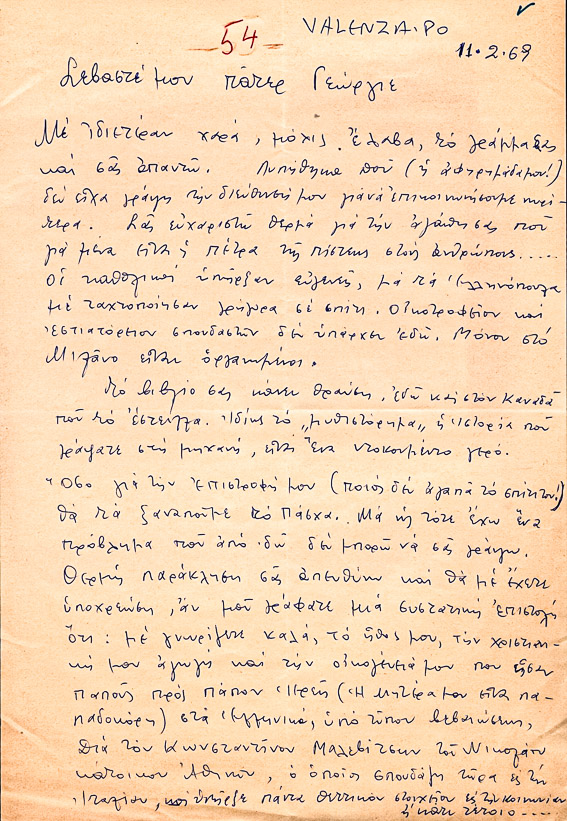 54
VALENZA.PO
11.2.69
Σεβαστέ μου πάτερ Γεώργιε
Μέ ἰδιετέραν χαρά, μόλις ἔλαβα, τό γράμμα σας
καί σᾶς ἀπαντῶ. Λυπήθηκα πού (ἡ ἀφηρημάδα μου!)
δέν εἶχα γράψη τήν διεύθυνσή μου γιά νά ἐπικοινωνήσουμε
Σᾶς εὐχαριστῶ θερμά γιά τήν ἀγάπη σας πού
γιά μένα εἶναι ἡ πέτρα τῆς πίστεως στούς ἀνθρώπους.....
Οἱ καθολικοί ὑπῆρξαν εὐγενεῖς, μά τά Ἑλληνόπουλα
μέ ταχτοποίησαν γρήγορα σέ σπίτι. Οἰκοτροφεῖον καί
ἑστιατόρειον σπουδαστῶν δέν ὑπάρχει ἐδῶ. Μόνον στό
Μιλᾶνο εἶναι ὀργανωμένοι.
Τό βιβλίο σας κάνει θραύση, ἐδῶ καί στόν Καναδᾶ
πού τό ἔστειλα. Ἰδίως τό „μυθιστόρημα" ἡ ἱστορία πού
γράψατε στή μηχανή, εἶναι ἕνα ντοκουμέντο γερό.
Ὅσο γιά τήν ἐπιστροφή μου (ποιός δέν ἀγαπᾶ τό σπίτι του!)
θά τά ξαναποῦμε τό Πάσχα. Μά ὡς τότε ἔχω ἕνα
πρόβλημα πού ἀπό 'δῶ δέν μπορῶ νά σᾶς γράψω.
Θερμή παράκληση σᾶς ἀπευθύνω καί θά μέ ἔχετε
ὑποχρεώση, ἄν μοῦ γράφατε μιά συστατική ἐπιστολή
ὅτι: μέ γνωρίζετε καλά, τό ἦθος μου, τήν χριστιανι-
κή μου ἀγωγή καί τήν οἰκογένειά μου που ἦσαν
παπούς πρός πάπον ἱερεῖς (Ἡ μητέρα μου εἶναι πα-
παδοκόρη) στά ἑλληνικά, ὑπό τύπον βεβαιώσεως,
διά τόν Κωνσταντῖνον Μαλεβίτσην τοῦ Νικολάου
κάτοικον Ἀθηνῶν, ὁ ὁποῖος σπουδάζη τώρα εἰς τήν
Ἰταλίαν, καί ὑπῆρξε πάντα θεττικόν στοιχεῖον εἰς τήν κοινωνίαν
ἤ κάτι τέτοιο.....